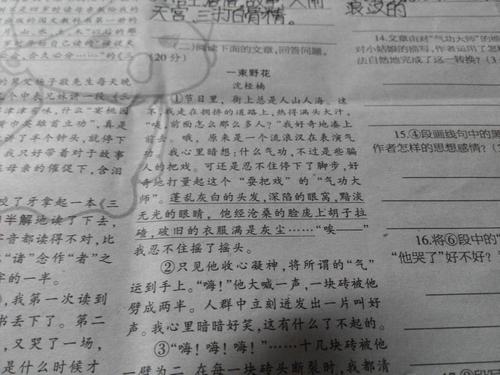 天宫，三打白骨精。
浪汉的
(三)阅读下面的文章，回答问题。
(20分)
一束野花
沈桂楠
①节日里，街上总是人山人海。这
不，我走在拥挤的道路上，热得满头大汗，
“咦，前面怎么那么多人？”我好奇地凑上
前去。哦，原来是一个流浪汉在表演气
功。我心里暗想：什么气功，不过是些骗
人的把戏。可还是忍不住停下了脚步，好
奇地打量起这个“耍把戏”的“气功大
师”。蓬乱灰白的头发，深陷的眼窝，黯淡
无光的眼睛，饱经沧桑的脸庞上胡子拉
碴，破旧的衣服满是灰尘……“唉——”
我忍不住摇了摇头。
②只见他收心凝神，将所谓的“气”
运到手上。“嗨！”他大喊一声，一块砖被他
劈成两半。人群中立刻迸发出一片叫好
声。我心里暗暗好笑，这有什么了不起的。
③“嗨！嗨！嗨！”……十几块砖被他
一劈为二，在每一块砖头断裂时，我都清
14.文章由对“气功大师”的描
对小姑娘的描写，作者运用了怎
法自然地完成了这一转换？(3
15.④段画线句中的黑
作者怎样的思想感情？(
16.将⑥段中的“
“他哭了”好不好？
个中表兄妹讲一段《三
津津有味，什么“宴桃园
讲了半个钟头，就停下
我只好带着对于故事
母亲的催促下，含泪
咬了牙拿起一本《三
半解地读了下去，
字音都读得不对，比
“诸”念作“者”之
字的一半。
，我第一次读到
书丢下了。第二
，又哭了一场，
是什么时候才